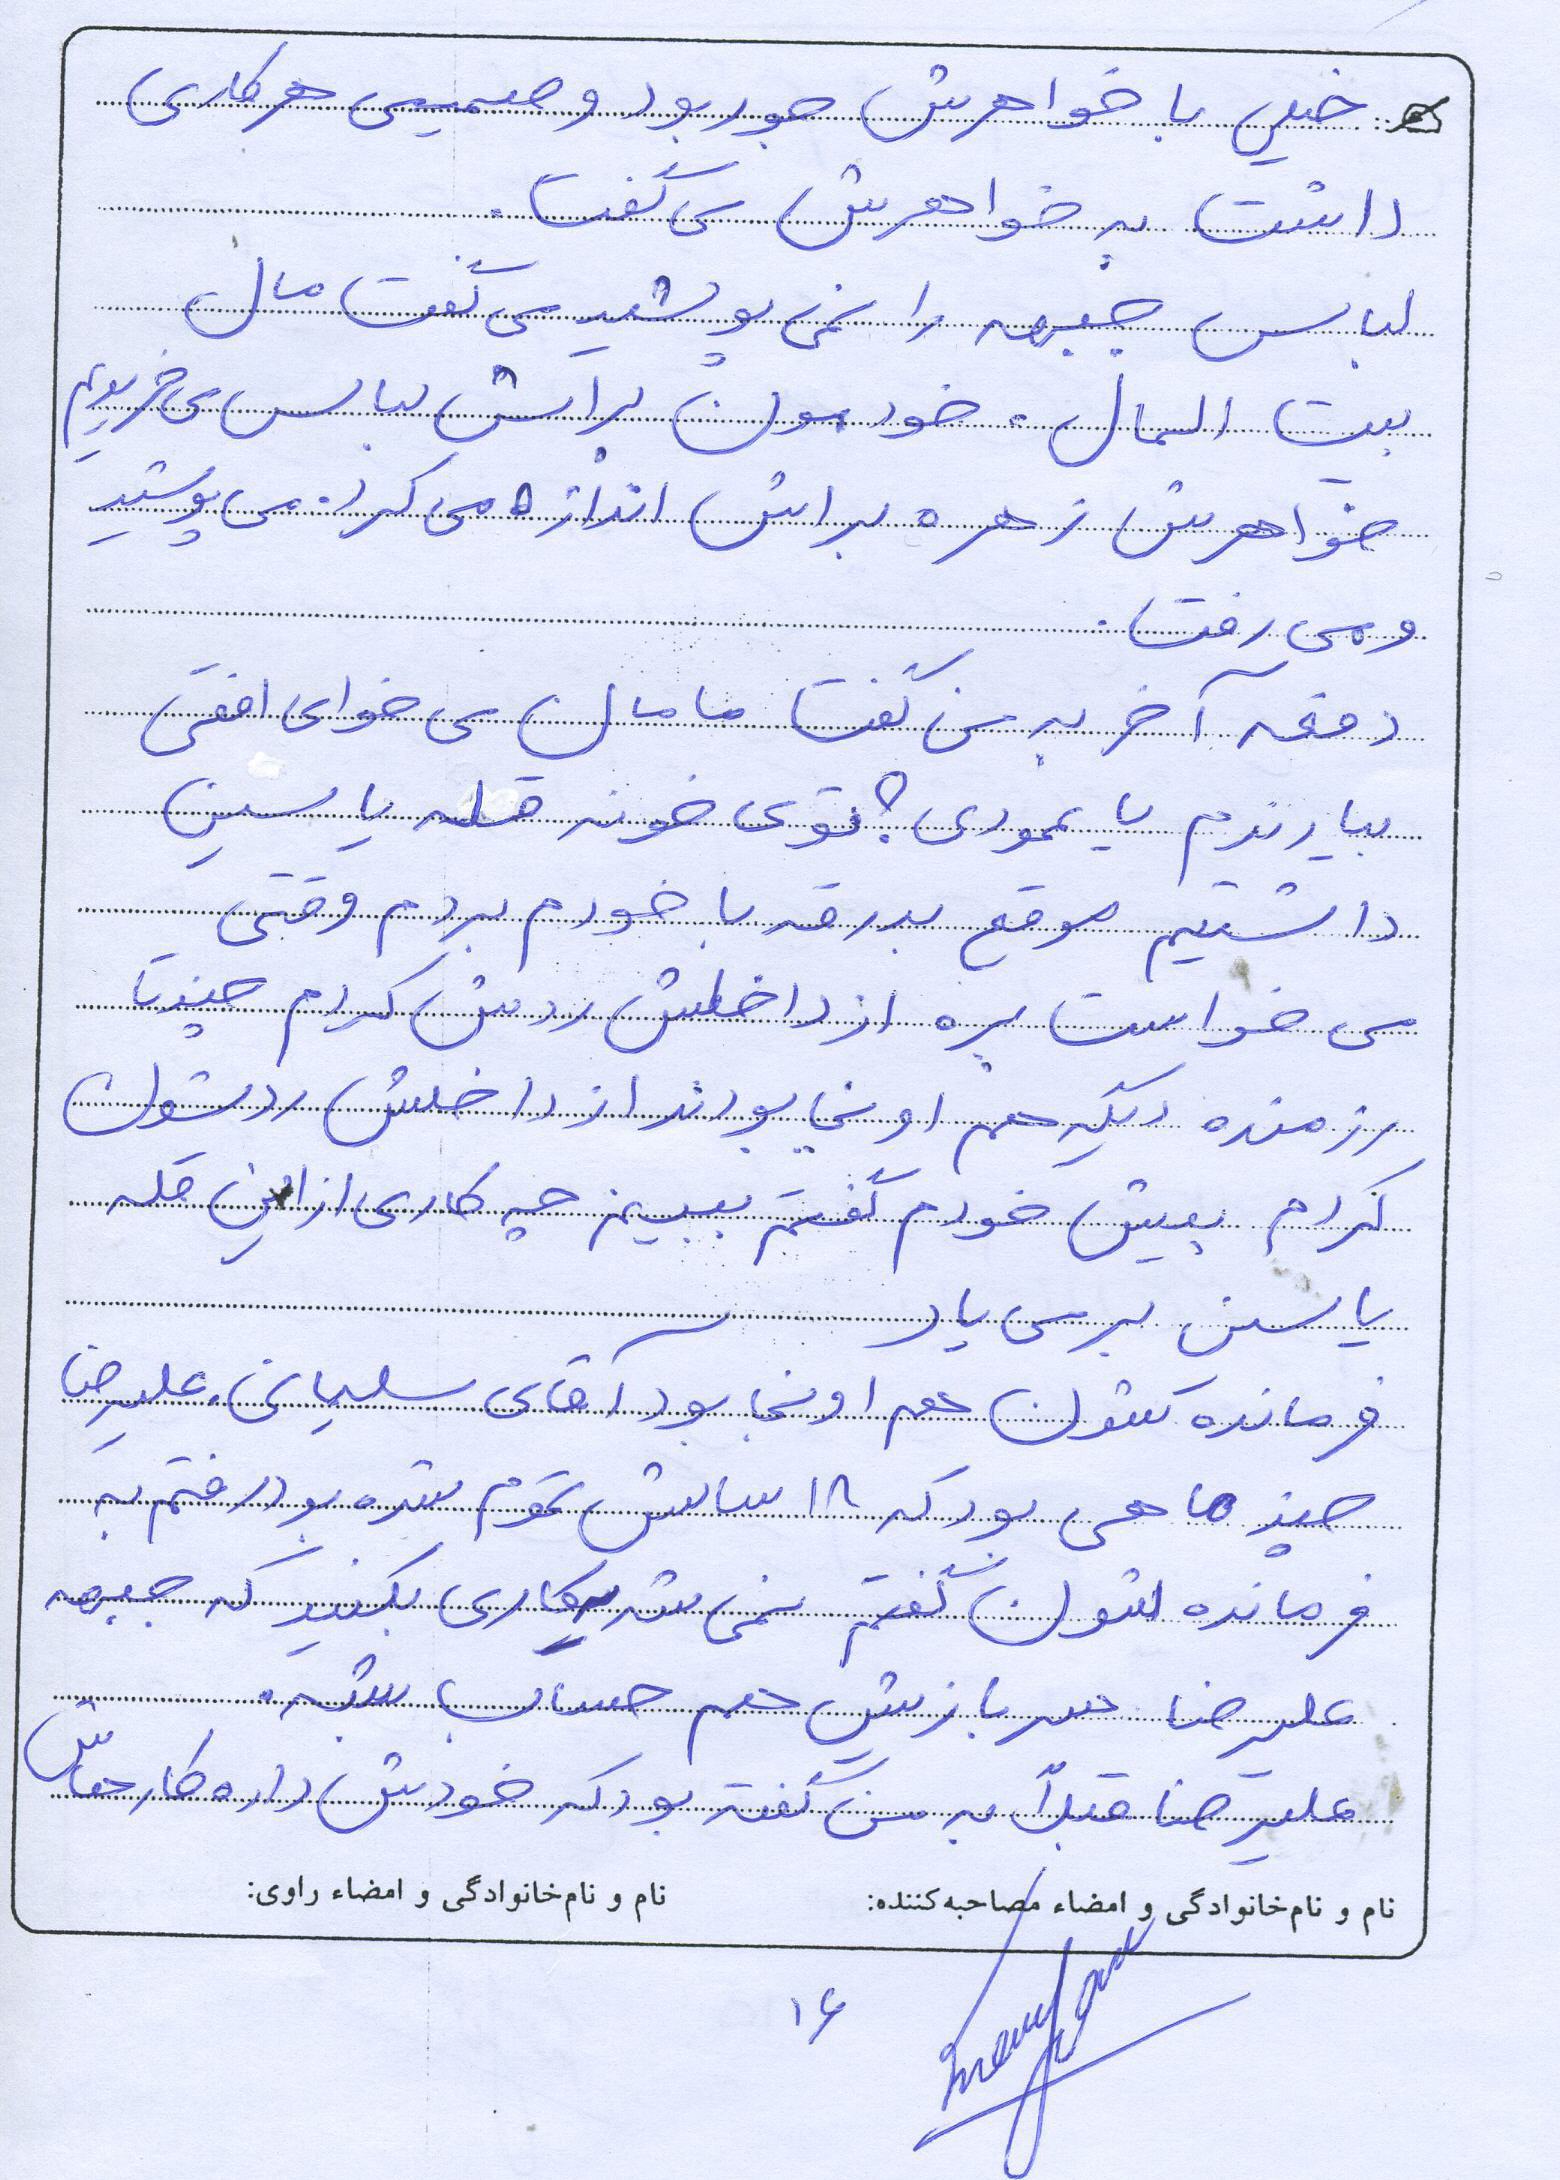 خیلی با خواهرش جور بود و صمیمی هر کاری
داشت به خواهرش می گفت.
لباس جبهه را نمی پوشید می گفت مال
بیت المال، خودمون براش لباس می خریدیم
خواهرش زهره براش اندازه می کرد. می پوشید
و می رفت.
دفعه آخر به من گفت مامان می خوای افقی
بیارندم یا عمودی؟ توی خونه حلقه یاسین
داشتیم موقع بدرقه با خودم بردم وقتی
می خواست بره از داخلش ردش کردم چندتا
رزمنده دیگه هم اونجا بودند از داخلش ردشون
کردم پیش خودم گفتم ببینم چه کاری از این حلقه
یاسین بر می یاد
فرمانده شون هم اونجا بود آقای سلیمانی، علیرضا
چند ماهی بود که ۱۸ سالش تموم شده بود رفتم به
فرمانده شون گفتم نمی شه یه کاری بکنید که جبهه
علیرضا سربازیش هم حساب بشه.
علیرضا قبلاً به من گفته بود که خودش داره کارهاش
نام و نام‌خانوادگی و امضاء مصاحبه‌کننده: نام و نام‌خانوادگی و امضاء راوی:
۱۶